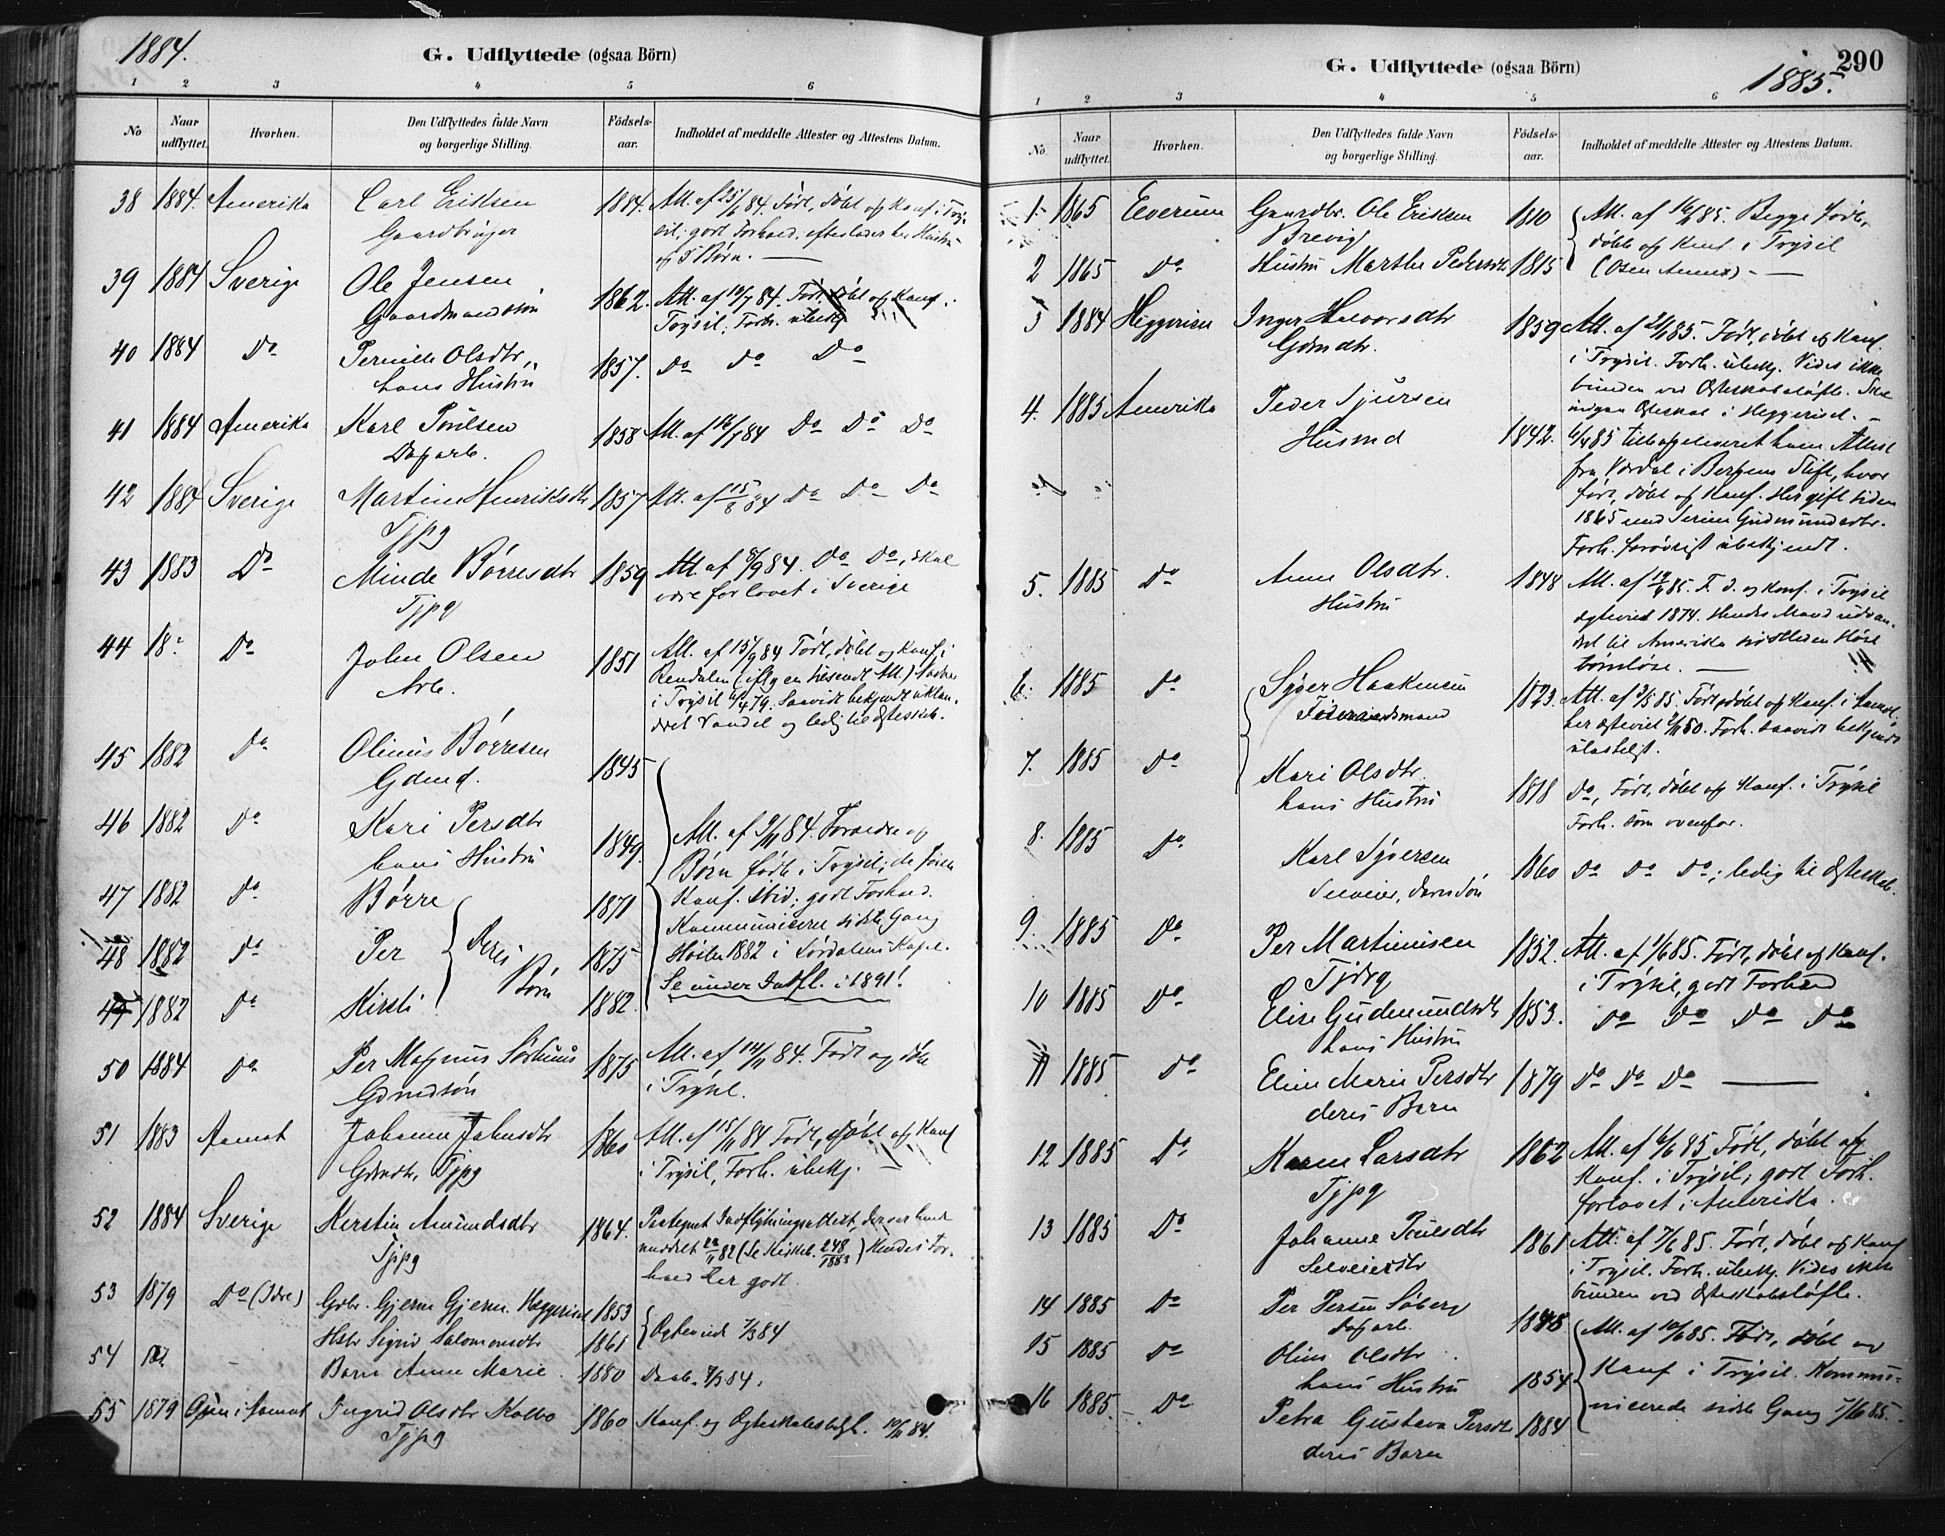 1884.
G. Udflyttede (ogsaa Börn)
1 2 3 4 5 6
No
Naar udflyttet.
Hvorhen.
Den Udflyttedes fulde Navn og borgerlige Stilling.
Födsels-aar.
Indholdet af meddelte Attester og Attestens Datum.
38 1884. Amerika Carl Eriksen 1884. Att. af 25/6 84. Født, døbt og Konf. i Try-
Gaardbruger sil; godt Forhold, efterlader her Hustru
og 5 Børn.
39 1884 Sverige Ole Jensen 1862. Att. af 12/7 84. Født, døbt og Konf. i
Gaardmandssön Trysil, Forh. ubekj.
40 1884 Do Pernille Olsdtr, 1857. Do Do Do
hans Hustru
41 1884 Amerika Karl Poulsen 1858 Att. af 16/7 84 Do Do Do
Dagarb.
42 1884 Sverige Martine Henriksdtr 1857 Att. af 15/8 84 Do Do Do
Tjpg
43 1883 Do Minde Børresdtr 1859 Att. af 8/9 84. Do Do, skal
Tjpg være forlovet i Sverige
44 18 Do John Olsen 1851 Att. af 15/9 84 Født, døbt og Konf. i
Arb. Rendalen (iflg en Att.)
i Trysil 79. Saavidt bekjendt uklan-
dret Vandel og ledig til Ægteskab.
45 1882 Do Olinus Børresen 1845
Gdmd.
46 1882 Do Kari Persdtr 1849. Att. af 9/11 84. Forældre og
hans Hustru Børn født i Trysil; de første
47 1882 Do Børre 1871 Konf. ibid; godt Forhold.
Kommunicerede sidste Gang
48 1882 Do Per Deres Børn 1875 Høsten 1882 i Sørdalens Kapel.
49 1882 Do Kirsti 1882. Se under Indfl. i 1891!
50 1884 Do Per Magnus 1875 Att. af 14/11 84. Født og døbt
Gdmdsön i Trysil.
51 1883 Aamot Johanne Johnsdtr 1860 Att. af 15/11 84 Født, døbt og Konf
Gdmdtr, Tjpg i Trysil, Forh. ubekj.
52 1884 Sverige Kerstin Amundsdtr 1864. Paategnet Indflytningsattest, der var hende
Tjpg meddelt 22/11 82 (Se Kirkeb. 248/1883) Hendes For-
hold her godt.
53 1879 Do (Idre) Gdbr. Gjerm Gjerm. Heggeriset 1853
Hstr Sigrid Salomonsdtr 1861 Ægteviede 7/3 84
54 Barn Anne Marie 1880 Daab. 7/3 84.
55 1879 Osen i Aamot Ingrid Olsdtr Kolbo 1860 Konf. og Ægteskabsledigh. 10/11 84.
Tjpg
290
1885.
G. Udflyttede (ogsaa Börn)
1 2 3 4 5 6
No.
Naar udflyttet.
Hvorhen.
Den Udflyttedes fulde Navn og borgerlige Stilling.
Födsels-aar.
Indholdet af meddelte Attester og Attestens Datum.
1. 1865 Elverum Gaardbr. Ole Eriksen 1810 Att. af 85. Begge født,
Brevig døbt og Konf. i Trysil
2 1865 Do Hustru Marthe Pedersdtr 1815 (Osen Annex)
3 1884 Heggerisen Inger Halvorsdtr 1859 Att. af 85. Født, døbt og Konf.
Gdmdtr. i Trysil. Forh. ubekj. Vides ikke
bunden ved Ægteskabsløfte. Skal
indgaa Ægteskab i Heggeriset.
4. 1885 Amerika Peder Sjursen
Husmd 1842. 6/4 85 tilbageleveret ham Attest
fra Vossdal i Bergens Stift, hvor
født, døbt og Konf. Her gift siden
1865 med Serine Gudmundsdtr.
Forh. forøvrigt ubekjendt.
5. 1885 Do Anne Olsdtr. 1848 Att. af 85. F. d. og Konf. i Trysil
Hustru ægteviet 1874. Hendes Mand udvan-
dret til Amerika sidstleden Høst
børnløse.
6. 1885 Do Syver Haakensen 1823. Att. af 3/5 85. Født, døbt og Konf. i Aamot,
Føderaadsmand her ægteviet 50. Forh. saavidt bekjendt
ulasteligt.
7. 1885 Do Kari Olsdtr. 1818 Do, Født, døbt og Konf. i Trysil
hans Hustru Forh. som ovenfor.
8. 1885 Do Karl Syversen 1860 Do Do Do; ledig til Ægteskab.
Selveier, deres Søn
9. 1885 Do Per Martinisen 1852. Att. af 1/6 85. Født, døbt og Konf.
Tjdrg i Trysil, godt Forhold
10 1885 Do Elise Gudmundsdtr 1853. Do Do Do Do
hans Hustru
11 1885 Do Eline Marie Persdtr 1879 Do Do Do
deres Barn
12 1885 Do Karen Larsdtr 1862 Att. af 6/6 85 Født, døbt og
Tjpg Konf. i Trysil, godt Forh.
forlovet i Amerika.
13 1885 Do Johanne Poulsdtr 1861 Att. af 7/6 85. Født, døbt og Konf
Selveierdtr i Trysil. Forh. ubekj. Vides ikke
bunden ved Ægteskabsløfte.
14 1885 Do Per Persen Søberg 1848. Att. af 10/6 85. Født, døbt og
Dagarb. Konf i Trysil. Kommu-
15 1885 Do Oline Olsdtr 1854 nicerede sidste Gang 7/6 85.
hans Hustru
16 1885 Do Petra Gustava Persdtr 1884
deres Barn